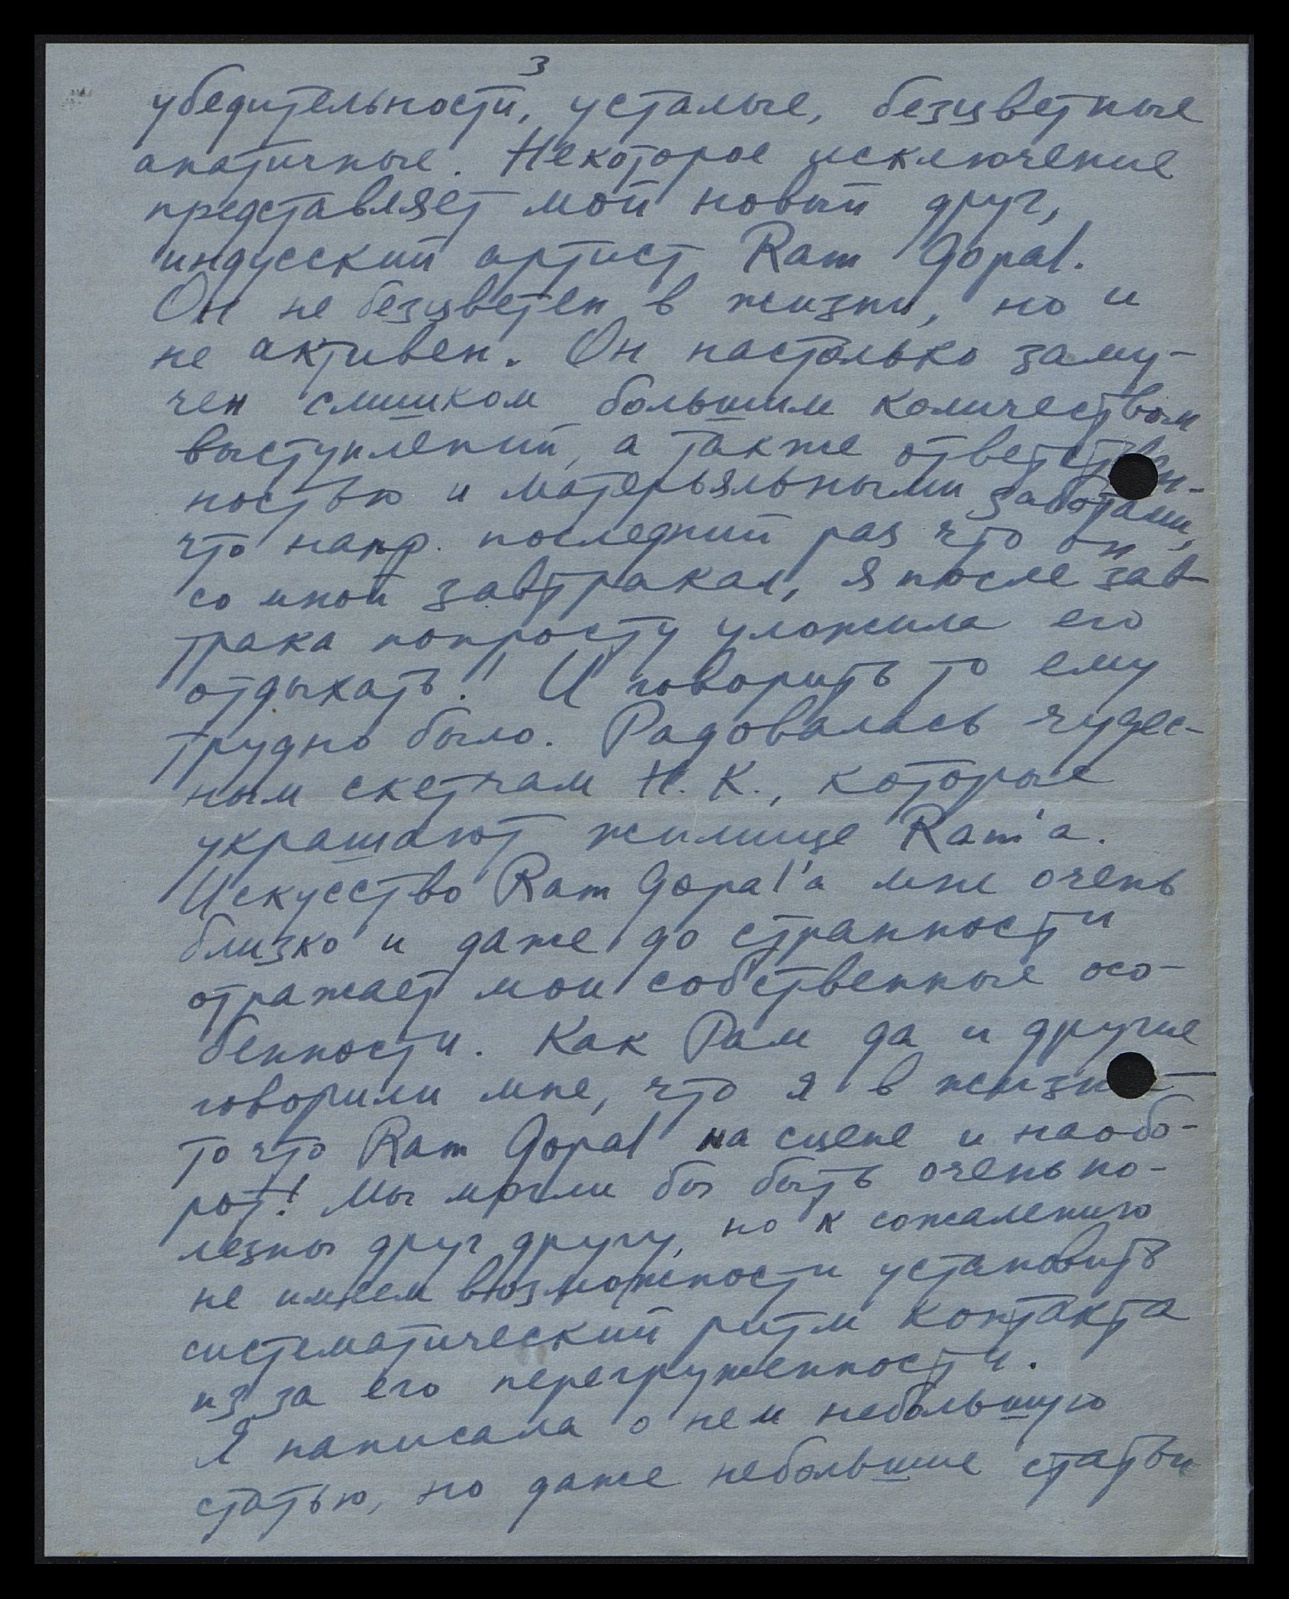 3
убедительности, усталые, безцветные
апатичные. Некоторое исключение
представляет мой новый друг,
индусский артист Ram Gopal.
Он не безцветен в жизни, но и
не активен. Он настолько заму-
чен слишком большим количеством
выступлений, а также ответствен-
ностью и матерьяльными заботами,
что напр. последний раз что он
со мной завтракал, я после зав-
трака попросту уложила его
отдыхать! И говорить то ему
трудно было. Радовалась чудес-
ным скетчам Н. К., которые
украшают жилище Ram'a.
Искусство Ram Gopal'a мне очень
близко и даже до странности
отражает мои собственные осо-
бенности. Как Рам да и другие
говорили мне, что я в жизни —
то что Ram Gopal на сцене и наобо-
рот! Мы могли бы быть очень по-
лезны друг другу, но к сожалению
не имеем возможности установить
систематический ритм контакта
из за его перегруженности.
Я написала о нем небольшую
статью, но даже небольшие статьи